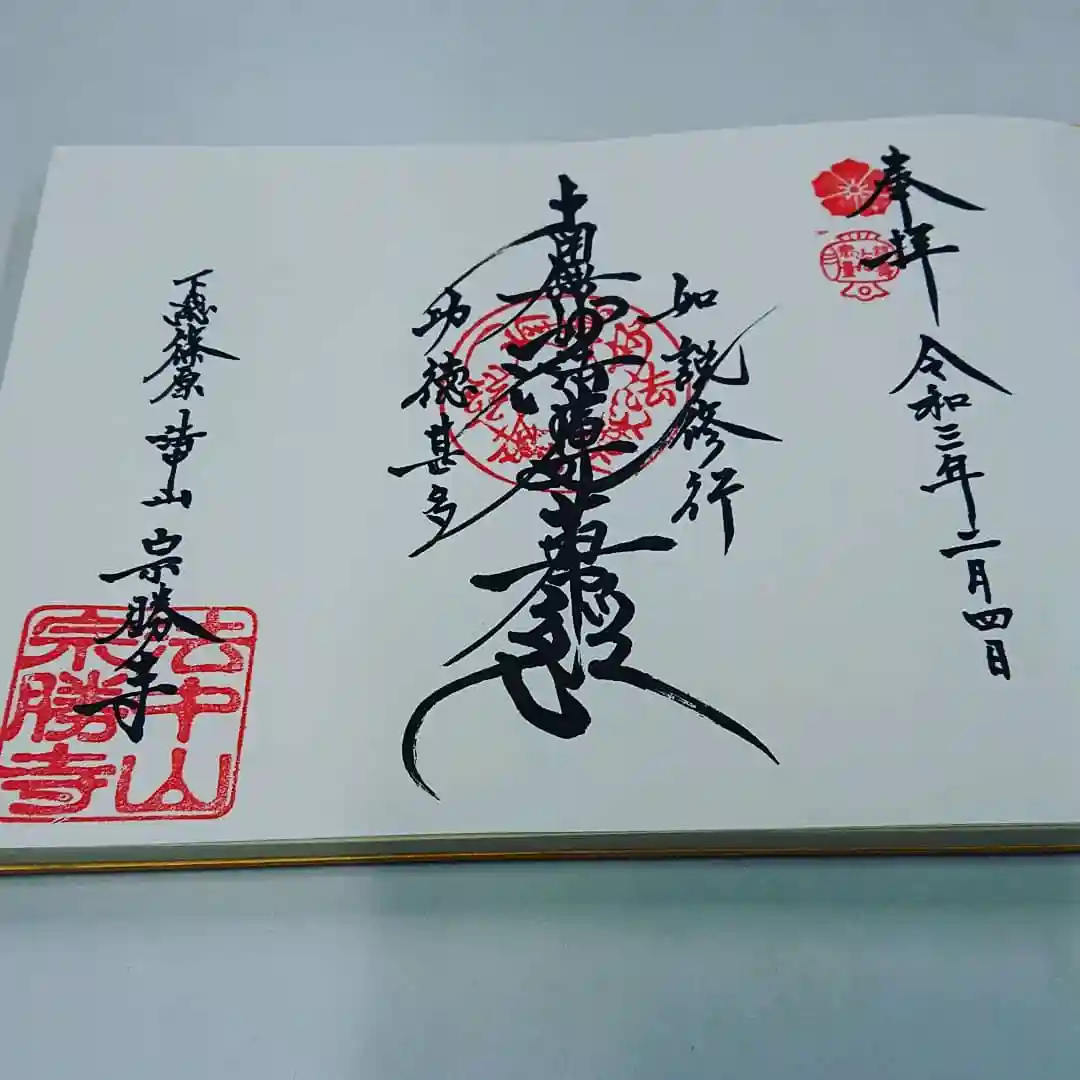 奉拝
令和三年二月四日
如説修行
南無妙法蓮華経
功徳甚多
篠原
山
宗勝寺
法中山
宗勝寺